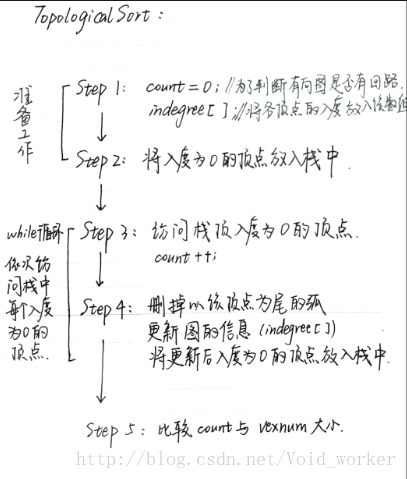 TopologicalSort:
准备工作
Step 1: count=0; //为了判断有向图是否有回路.
indegree[ ]; //将各顶点的入度放入该数组
Step 2: 将入度为0的顶点放入栈中.
while循环
依次访问栈中每个入度为0的顶点.
Step 3: 访问栈顶入度为0的顶点.
count++;
Step 4: 删掉以该顶点为尾的弧
更新图的信息(indegree[])
将更新后入度为0的顶点放入栈中.
Step 5: 比较count与vexnum大小.
http://blog.csdn.net/Void_worker